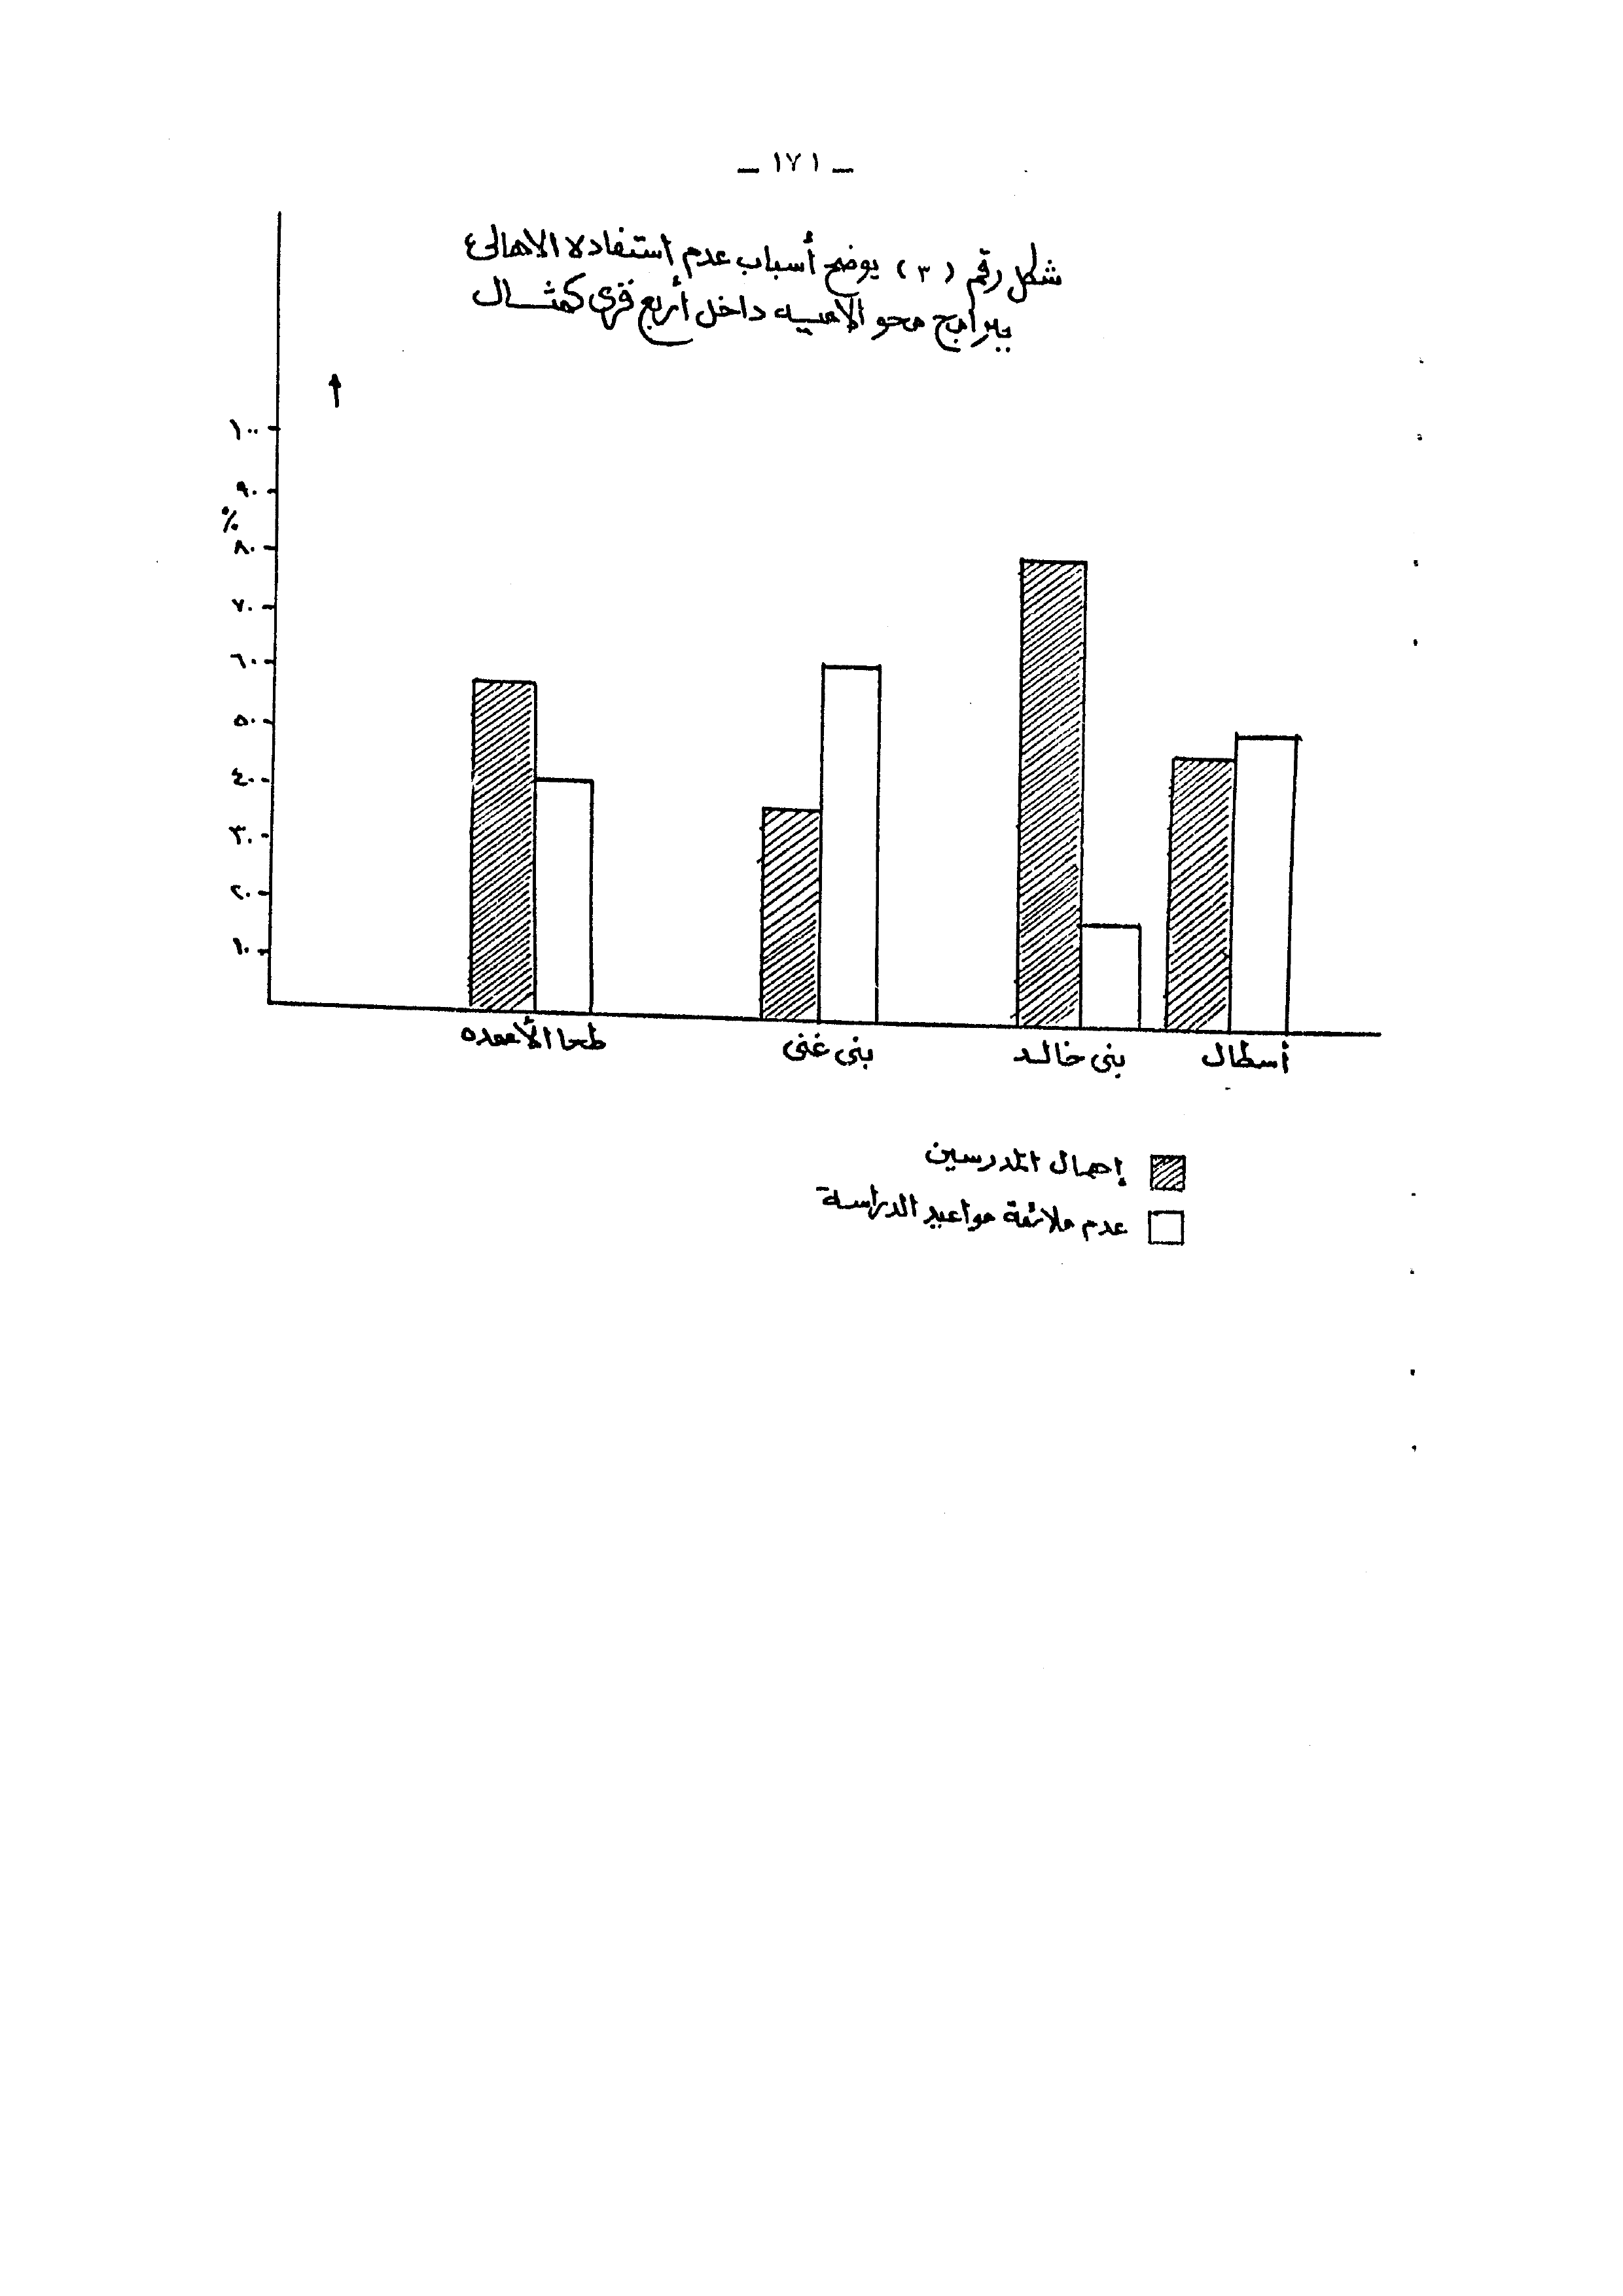 ـ ١٧١ ـ
شكل رقم (٣) يوضح أسباب عدم استفاده الاهالى
ببرامج محو الاميه داخل أربع قرى كمثـــال
١٠٠
٩٠
%
٨٠
٧٠
٦٠
٥٠
٤٠
٣٠
٢٠
١٠
أسطال
بنى خالد
بنى غنى
طحا الأعمده
إهمال المدرسين
عدم ملائمة مواعيد الدراسة